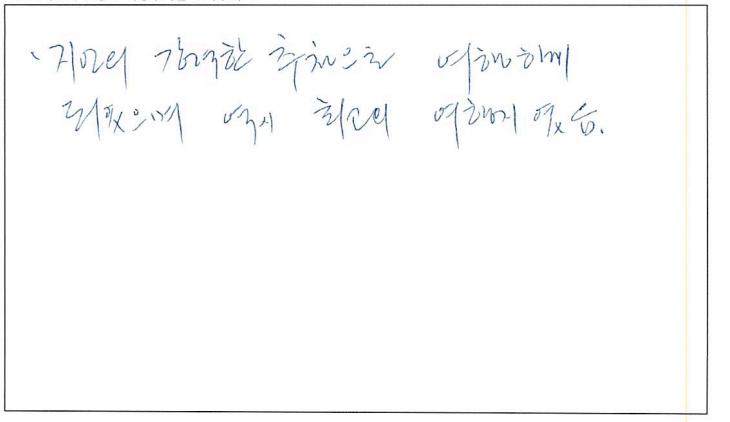 、지인의 강력한 추천으로 여행하게
되었으며 역시 최고의 여행지 였슴.